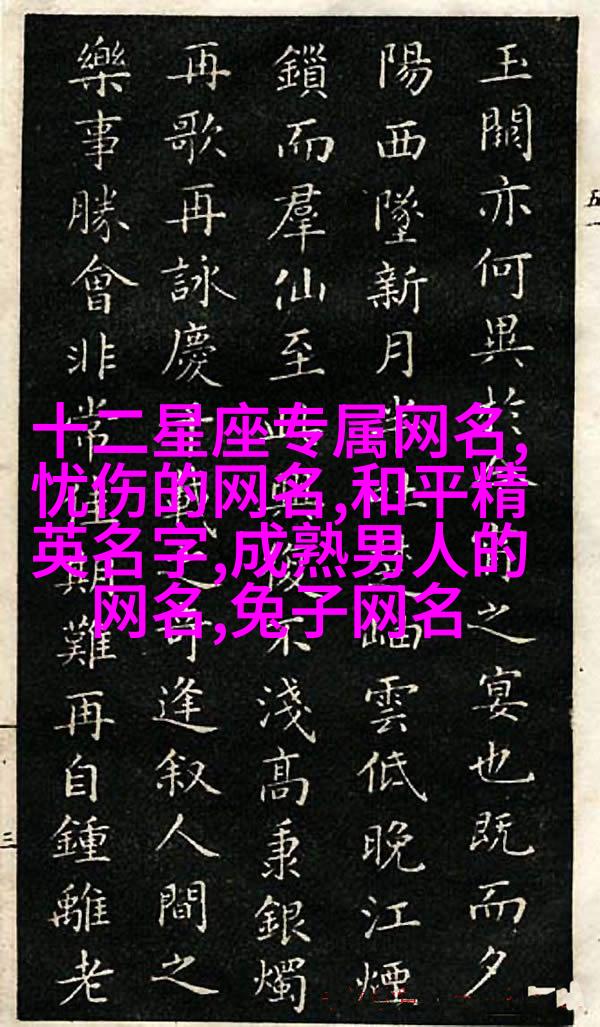 玉闕亦何異於之宴也既而夕
陽西墜新月岫雲低晚江煙
鎖而羣仙至不淺高秉銀燭
再歌再詠慶逢叙人間之
樂事勝會非常期難再自鍾離老
十二星座专属网名,
忧伤的网名,和平精
英名字,成熟男人的
网名,兔子网名